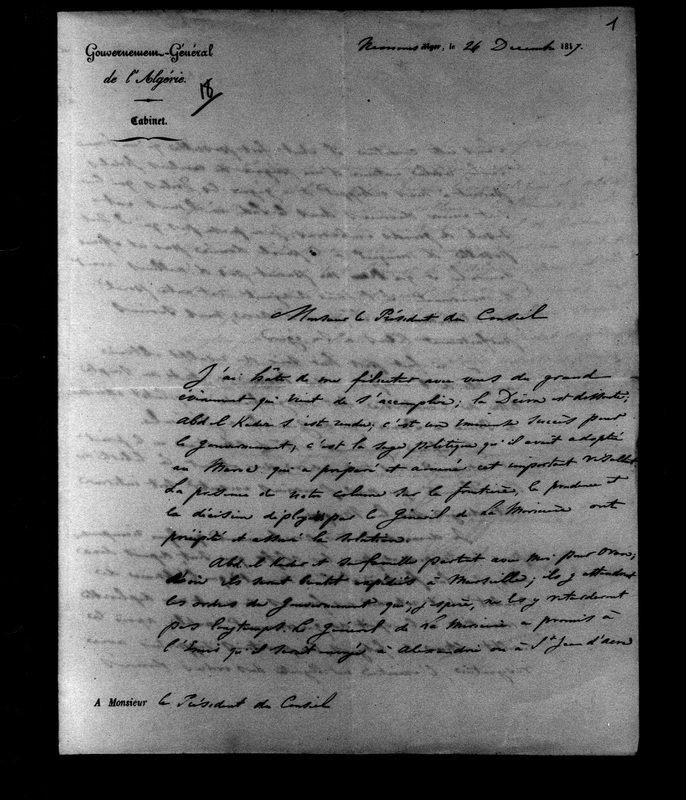 1
Gouvernement-Général
de l'Algérie.
Cabinet.
18
Nemours Alger, le 24 Decemb 1847.
Monsieur le Président du Conseil
J'ai hâte de me féliciter avec vous du grand
évènement qui vient de s'accomplir; la Deïra est dissoute;
Abd el Kader s'est rendu; c'est un immense succès pour
le gouvernement, c'est la sage politique qu'il avait adoptée
au Maroc qui a préparé et amené cet important résultat.
La présence de notre colonne sur la frontière, la prudence et
la décision déployées par le Général de la Moricière ont
précipité et assuré la solution.
Abd el Kader et sa famille partent avec moi pour Oran;
d'où ils sont bientôt expédiés à Marseille; ils y attendront
les ordres du Gouvernement qui, j'espère, ne les y retiendront
pas longtemps. Le Général de la Moricière a promis à
l'Emir qu'il serait envoyé à Alexandrie ou à St Jean d'acre
A Monsieur le Président du Conseil